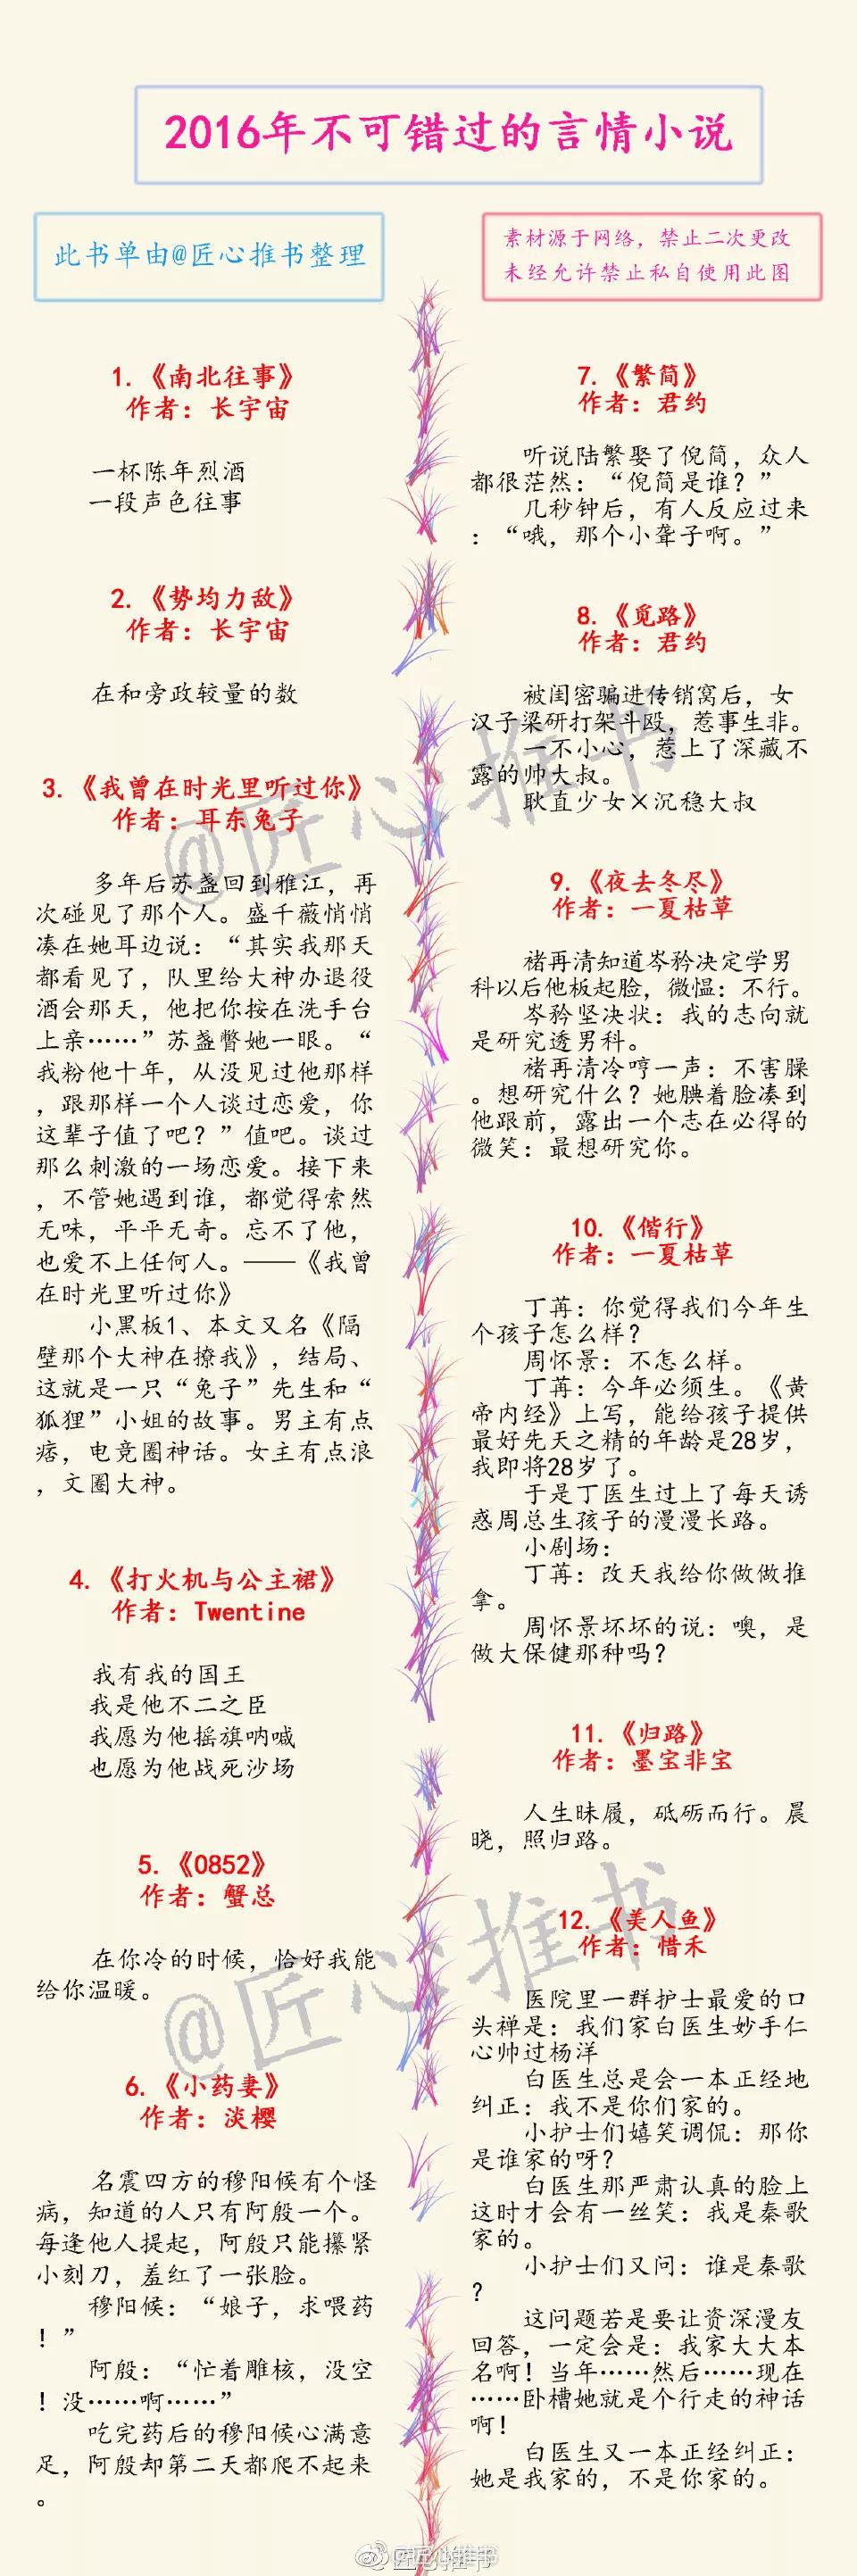 2016年不可错过的言情小说
此书单由@匠心推书整理
素材源于网络，禁止二次更改
未经允许禁止私自使用此图
1.《南北往事》
作者：长宇宙
一杯陈年烈酒
一段声色往事
2.《势均力敌》
作者：长宇宙
在和旁政较量的数
3.《我曾在时光里听过你》
作者：耳东兔子
多年后苏盏回到雅江，再
次碰见了那个人。盛千薇悄悄
凑在她耳边说：“其实我那天
都看见了，队里给大神办退役
酒会那天，他把你按在洗手台
上亲……”苏盏瞥她一眼。“
我粉他十年，从没见过他那样
，跟那样一个人谈过恋爱，你
这辈子值了吧？”值吧。谈过
那么刺激的一场恋爱。接下来
，不管她遇到谁，都觉得索然
无味，平平无奇。忘不了他，
也爱不上任何人。——《我曾
在时光里听过你》
小黑板1、本文又名《隔
壁那个大神在撩我》，结局、
这就是一只“兔子”先生和“
狐狸”小姐的故事。男主有点
痞，电竞圈神话。女主有点浪
，文圈大神。
4.《打火机与公主裙》
作者：Twentine
我有我的国王
我是他不二之臣
我愿为他摇旗呐喊
也愿为他战死沙场
5.《0852》
作者：蟹总
在你冷的时候，恰好我能
给你温暖。
6.《小药妻》
作者：淡樱
名震四方的穆阳候有个怪
病，知道的人只有阿殷一个。
每逢他人提起，阿殷只能攥紧
小刻刀，羞红了一张脸。
穆阳候：“娘子，求喂药
！”
阿殷：“忙着雕核，没空
！没……啊……”
吃完药后的穆阳候心满意
足，阿殷却第二天都爬不起来
。
7.《繁简》
作者：君约
听说陆繁娶了倪简，众人
都很茫然：“倪简是谁？”
几秒钟后，有人反应过来
：“哦，那个小聋子啊。”
8.《觅路》
作者：君约
被闺密骗进传销窝后，女
汉子梁研打架斗殴，惹事生非。
一不小心，惹上了深藏不
露的帅大叔。
耿直少女×沉稳大叔
9.《夜去冬尽》
作者：一夏枯草
褚再清知道岑矜决定学男
科以后他板起脸，微愠：不行。
岑矜坚决状：我的志向就
是研究透男科。
褚再清冷哼一声：不害臊
。想研究什么？她腆着脸凑到
他跟前，露出一个志在必得的
微笑：最想研究你。
10.《偕行》
作者：一夏枯草
丁苒：你觉得我们今年生
个孩子怎么样？
周怀景：不怎么样。
丁苒：今年必须生。《黄
帝内经》上写，能给孩子提供
最好先天之精的年龄是28岁，
我即将28岁了。
于是丁医生过上了每天诱
惑周总生孩子的漫漫长路。
小剧场：
丁苒：改天我给你做做推
拿。
周怀景坏坏的说：噢，是
做大保健那种吗？
11.《归路》
作者：墨宝非宝
人生昧履，砥砺而行。晨
晓，照归路。
12.《美人鱼》
作者：惜禾
医院里一群护士最爱的口
头禅是：我们家白医生妙手仁
心帅过杨洋
白医生总是会一本正经地
纠正：我不是你们家的。
小护士们嬉笑调侃：那你
是谁家的呀？
白医生那严肃认真的脸上
这时才会有一丝笑：我是秦歌
家的。
小护士们又问：谁是秦歌
？
这问题若是要让资深漫友
回答，一定会是：我家大大本
名啊！当年……然后……现在
……卧槽她就是个行走的神话
啊！
白医生又一本正经纠正：
她是我家的，不是你家的。
@匠心推书
@匠心推书
@匠心推书